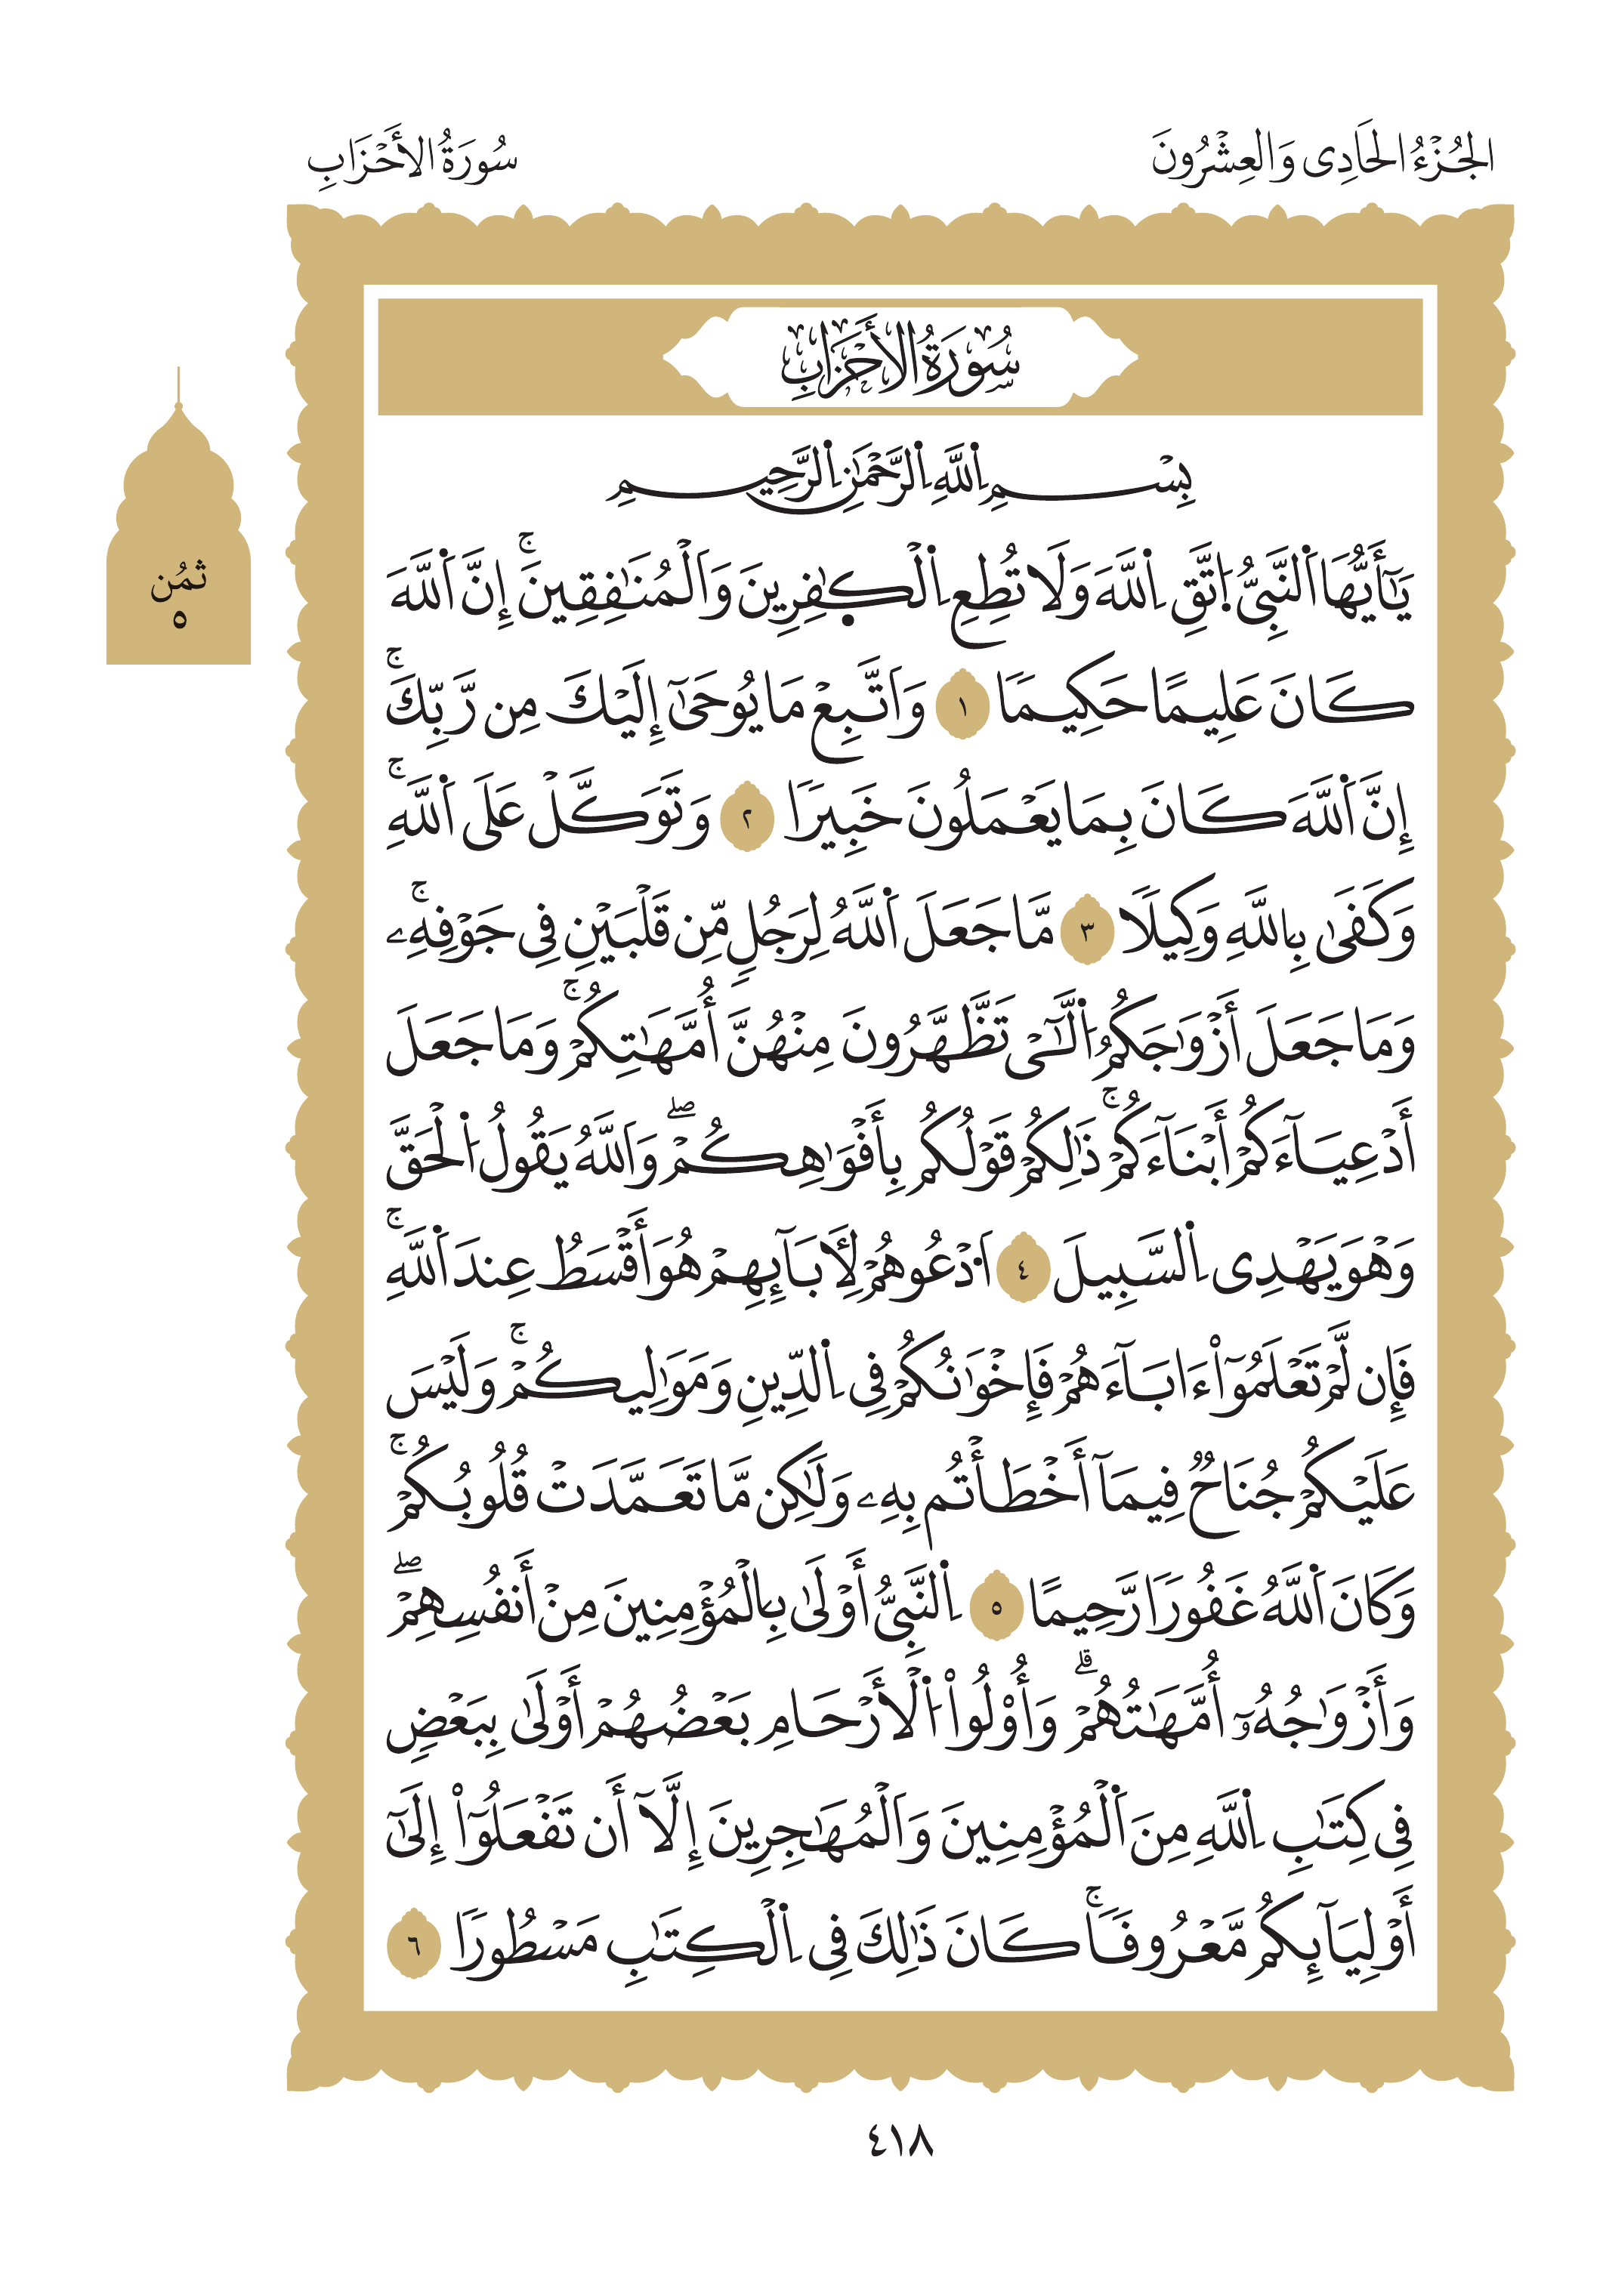 الجُزْءُ الحَادِى وَالعِشْرُونَ
سُورَةُ الأَحْزَابِ
سُورَةُ الأَحْزَابِ
ثُمُن
٥
بِسْمِ اِ۬للَّهِ اِ۬لرَّحْمَٰنِ اِ۬لرَّحِيمِ
يَٰٓأَيُّهَا اَ۬لنَّبِىُّ اُ۪تَّقِ اِ۬للَّهَ وَلَا تُطِعِ اِ۬لْكٜ۪فِرِينَ وَالْمُنَٰفِقِينَۚ إِنَّ اَ۬للَّهَ
كَانَ عَلِيمًا حَكِيمٗا ١ وَاتَّبِعْ مَا يُوحَىٰٓ إِلَيْكَ مِن رَّبِّكَۚ
إِنَّ اَ۬للَّهَ كَانَ بِمَا يَعْمَلُونَ خَبِيرٗا ٢ وَتَوَكَّلْ عَلَى اَ۬للَّهِۚ
وَكَفَىٰ بِاللَّهِ وَكِيلٗا ٣ مَّا جَعَلَ اَ۬للَّهُ لِرَجُلٖ مِّن قَلْبَيْنِ فِى جَوْفِهِۦۚ
وَمَا جَعَلَ أَزْوَٰجَكُمُ اُ۬لَّٰٓـْى تَظَّهَّرُونَ مِنْهُنَّ أُمَّهَٰتِكُمْۚ وَمَا جَعَلَ
أَدْعِيَآءَكُمْ أَبْنَآءَكُمْۚ ذَٰلِكُمْ قَوْلُكُم بِأَفْوَٰهِكُمْۖ وَاللَّهُ يَقُولُ اُ۬لْحَقَّ
وَهْوَ يَهْدِى اِ۬لسَّبِيلَ ٤ اَ۟دْعُوهُمْ لِأٓبَآئِهِمْ هُوَ أَقْسَطُ عِندَ اَ۬للَّهِۚ
فَإِن لَّمْ تَعْلَمُوٓاْ ءَابَآءَهُمْ فَإِخْوَٰنُكُمْ فِى اِ۬لدِّينِ وَمَوَٰلِيكُمْۚ وَلَيْسَ
عَلَيْكُمْ جُنَاحٞ فِيمَآ أَخْطَأْتُم بِهِۦ وَلَٰكِن مَّا تَعَمَّدَتْ قُلُوبُكُمْۚ
وَكَانَ اَ۬للَّهُ غَفُورٗا رَّحِيمًا ٥ اِ۬لنَّبِىُّ أَوْلَىٰ بِالْمُؤْمِنِينَ مِنْ أَنفُسِهِمْۖ
وَأَزْوَٰجُهُۥٓ أُمَّهَٰتُهُمْۗ وَأُوْلُواْ اُ۬لْأَرْحَامِ بَعْضُهُمْ أَوْلَىٰ بِبَعْضٖ
فِى كِتَٰبِ اِ۬للَّهِ مِنَ اَ۬لْمُؤْمِنِينَ وَالْمُهَٰجِرِينَ إِلَّآ أَن تَفْعَلُوٓاْ إِلَىٰٓ
أَوْلِيَآئِكُم مَّعْرُوفٗاۚ كَانَ ذَٰلِكَ فِى اِ۬لْكِتَٰبِ مَسْطُورٗا ٦
٤١٨